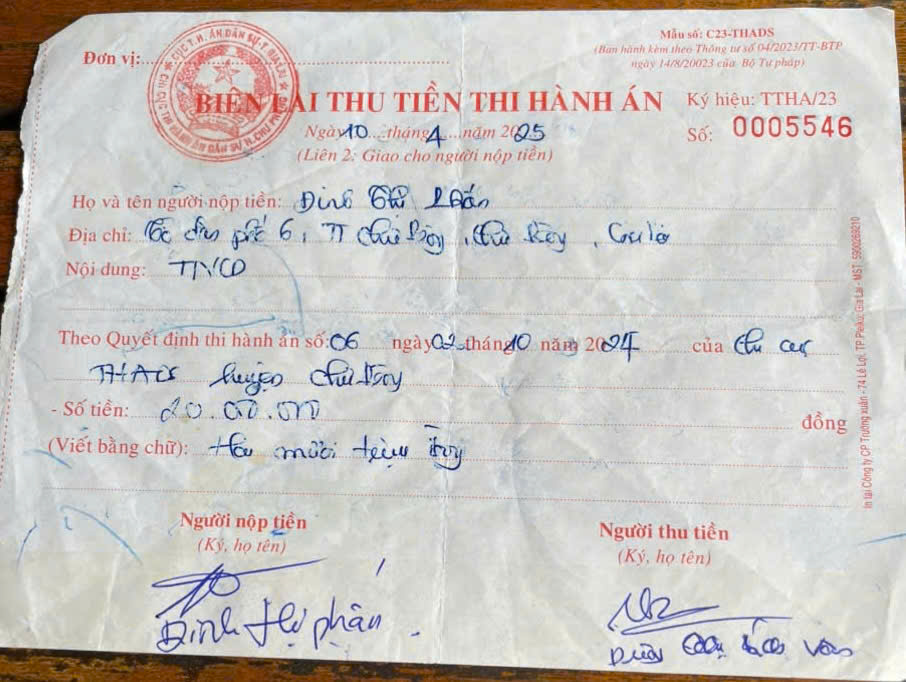 Mẫu số: C23-THADS
(Ban hành kèm theo Thông tư số 04/2023/TT-BTP
ngày 14/8/20023 của Bộ Tư pháp)
Đơn vị:
BIÊN LAI THU TIỀN THI HÀNH ÁN
Ký hiệu: TTHA/23
Ngày 10 tháng 4 năm 2025
Số: 0005546
(Liên 2: Giao cho người nộp tiền)
Họ và tên người nộp tiền: Đinh Thị
Địa chỉ: Tổ dân phố 6, TT Chư Prông, Chư Prông, Gia Lai
Nội dung:
Theo Quyết định thi hành án số: 06 ngày 02 tháng 10 năm 2024 của chi cục
THADS huyện Chư Prông
- Số tiền: 20.000.000 đồng
(Viết bằng chữ): Hai mươi triệu đồng
Người nộp tiền
(Ký, họ tên)
Đinh Thị phấn
Người thu tiền
(Ký, họ tên)
In tại Công ty CP Trường xuân - 74 Lê Lợi, TP Pleiku, Gia Lai - MST: 5900269210